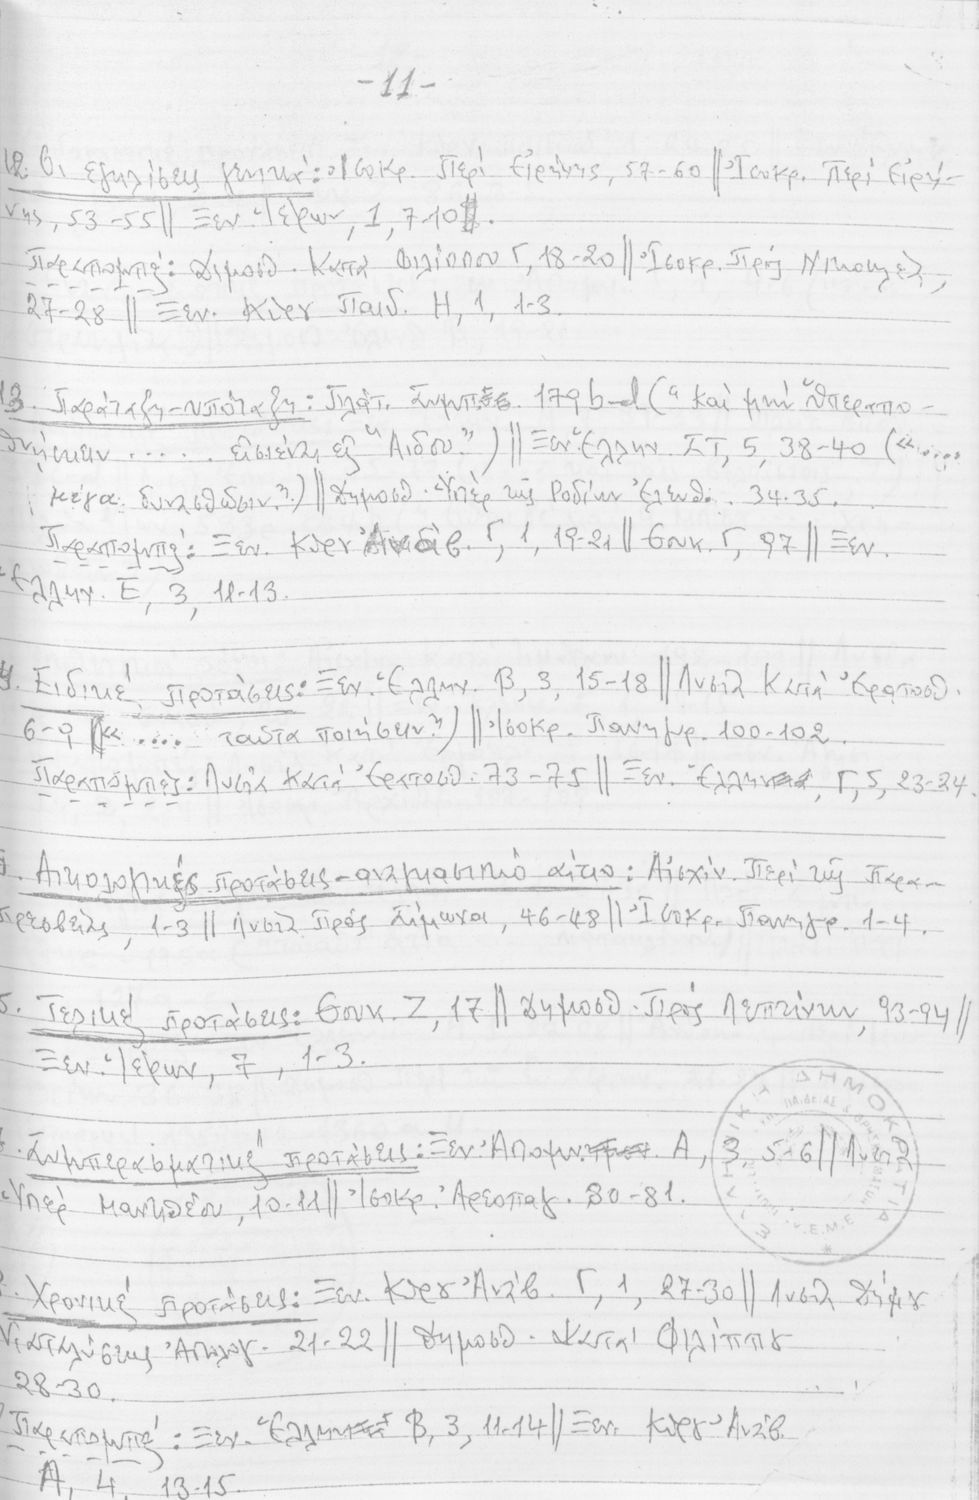 -11-
12. Οι εγκλίσεις γενικά: Ἰσοκρ. Περί Εἰρήνης, 57-60 || Ἰσοκρ. Περί Εἰρή-
νης, 53-55 || Ξεν. Ἱέρων, 1, 7-10.
Παραπομπές: Δημοσθ. Κατά Φιλίππου Γ, 18-20 || Ἰσοκρ. Πρός Νικοκλέα,
27-28 || Ξεν. Κύρου Παιδ. Η, 1, 1-3.
13. Παράταξη-υπόταξη: Πλάτ. Συμπόσ. 179b-d ("Καί μήν ὑπεραπο-
θνήσκειν ..... εἰσιέναι εἰς Ἅιδου") || Ξεν. Ἑλλην. ΣΤ, 5, 38-40 («....
μέγα δυνασθῶσιν") || Δημοσθ. Ὑπέρ τῆς Ροδίων Ἐλευθ. 34-35.
Παραπομπές: Ξεν. Κύρου Ἀνάβ. Γ, 1, 19-21 || Θουκ. Γ, 97 || Ξεν.
Ἑλλην. Ε, 3, 11-13.
Ειδικές προτάσεις: Ξεν. Ἑλλην. Β, 3, 15-18 || Λυσία Κατά Ἐρατοσθ.
6-9 («.... ταῦτα ποιήσειν") || Ἰσοκρ. Πανηγυρ. 100-102.
Παραπομπές: Λυσία Κατά Ἐρατοσθ. 73-75 || Ξεν. Ἑλλην, Γ, 5, 23-24.
Αιτιολογικές προτάσεις-αναγκαστικό αίτιο: Αἰσχίν. Περί τῆς Παρα-
πρεσβείας, 1-3 || Λυσία Πρός Σίμωνα, 46-48 || Ἰσοκρ. Πανηγυρ. 1-4.
5. Τελικές προτάσεις: Θουκ. Ζ, 17 || Δημοσθ. Πρός Λεπτίνην, 93-94 ||
Ξεν. Ἱέρων, 7, 1-3.
Συμπερασματικές προτάσεις: Ξεν. Ἀπομν. Α, 3, 5-6 || Λυσία
Ὑπέρ Μαντιθέου, 10-11 || Ἰσοκρ. Ἀρεοπαγ. 80-81.
Χρονικές προτάσεις: Ξεν. Κύρου Ἀνάβ. Γ, 1, 27-30 || Λυσία Δήμου
Καταλύσεως Ἀπολογ. 21-22 || Δημοσθ. Κατά Φιλίππου
28-30.
Παραπομπές: Ξεν. Ἑλλην Β, 3, 11-14 || Ξεν. Κύρου Ἀνάβ.
Α, 4, 13-15.
ΕΛΛΗΝΙΚΗ ΔΗΜΟΚΡΑΤΙΑ
Κ.Ε.Μ.Ε